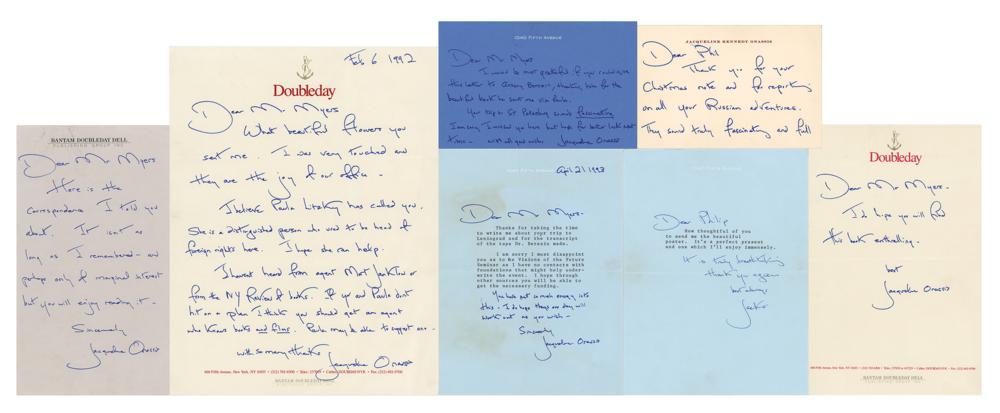 BANTAM DOUBLEDAY DELL
PUBLISHING GROUP, INC.
Dear Mr Myers
Here is the
correspondence I told you
about. It isn't as
long as I remembered — and
perhaps only of marginal interest
but you will enjoy reading it —
Sincerely
Jacqueline Onassis
Feb 6 1992
Doubleday
Dear Mr. Myers
What beautiful flowers you
sent me. I was very touched and
they are the joy of our office —
I believe Paula Litzky has called you.
She is a distinguished person who used to be head of
foreign rights here. I hope she can help.
I haven't heard from agent Mort Janklow or
from the NY Review of books. If you and Paula don't
hit on a plan I think you should get an agent
who knows books and films. Paula may be able to suggest one —
with so many thanks
Jacqueline Onassis
666 Fifth Avenue, New York, NY 10103 • (212) 765-6500 • Cables: DOUBDAY NYK
BANTAM DOUBLEDAY DELL
1040 FIFTH AVENUE
Dear Mr. Myers
I would be most grateful if you could give
this letter to thanking him for the
beautiful book he sent me via Paula.
Your trip to St Petersburg sounds fascinating
I am sorry I missed you here but hope for better luck next
time — with all good wishes Jacqueline Onassis
JACQUELINE KENNEDY ONASSIS
Dear Phil
Thank you for your
Christmas note and for reporting
on all your Russian adventures.
They sound truly fascinating and full
April 21 1993
Dear Mr. Myers —
Thanks for taking the time
to write me about your trip to
Leningrad and for the transcript
of the tape Dr. Berezin made.
I am sorry I must disappoint
you as to the Visions of the Future
Seminar as I have no contacts with
foundations that might help under-
write the event. I hope through
other sources you will be able to
get the necessary funding.
You have put so much energy into
this — I do hope things one day will
work out as you wish —
Sincerely
Jacqueline Onassis
1040 FIFTH AVENUE
Dear Philip
How thoughtful of you
to send me the beautiful
poster. It's a perfect present
and one which I'll enjoy immensely.
It is truly breathtaking
thank you again
best always
Jackie
Doubleday
Dear Mr. Myers.
I do hope you will find
this book enthralling —
best
Jacqueline Onassis
BANTAM DOUBLEDAY DELL